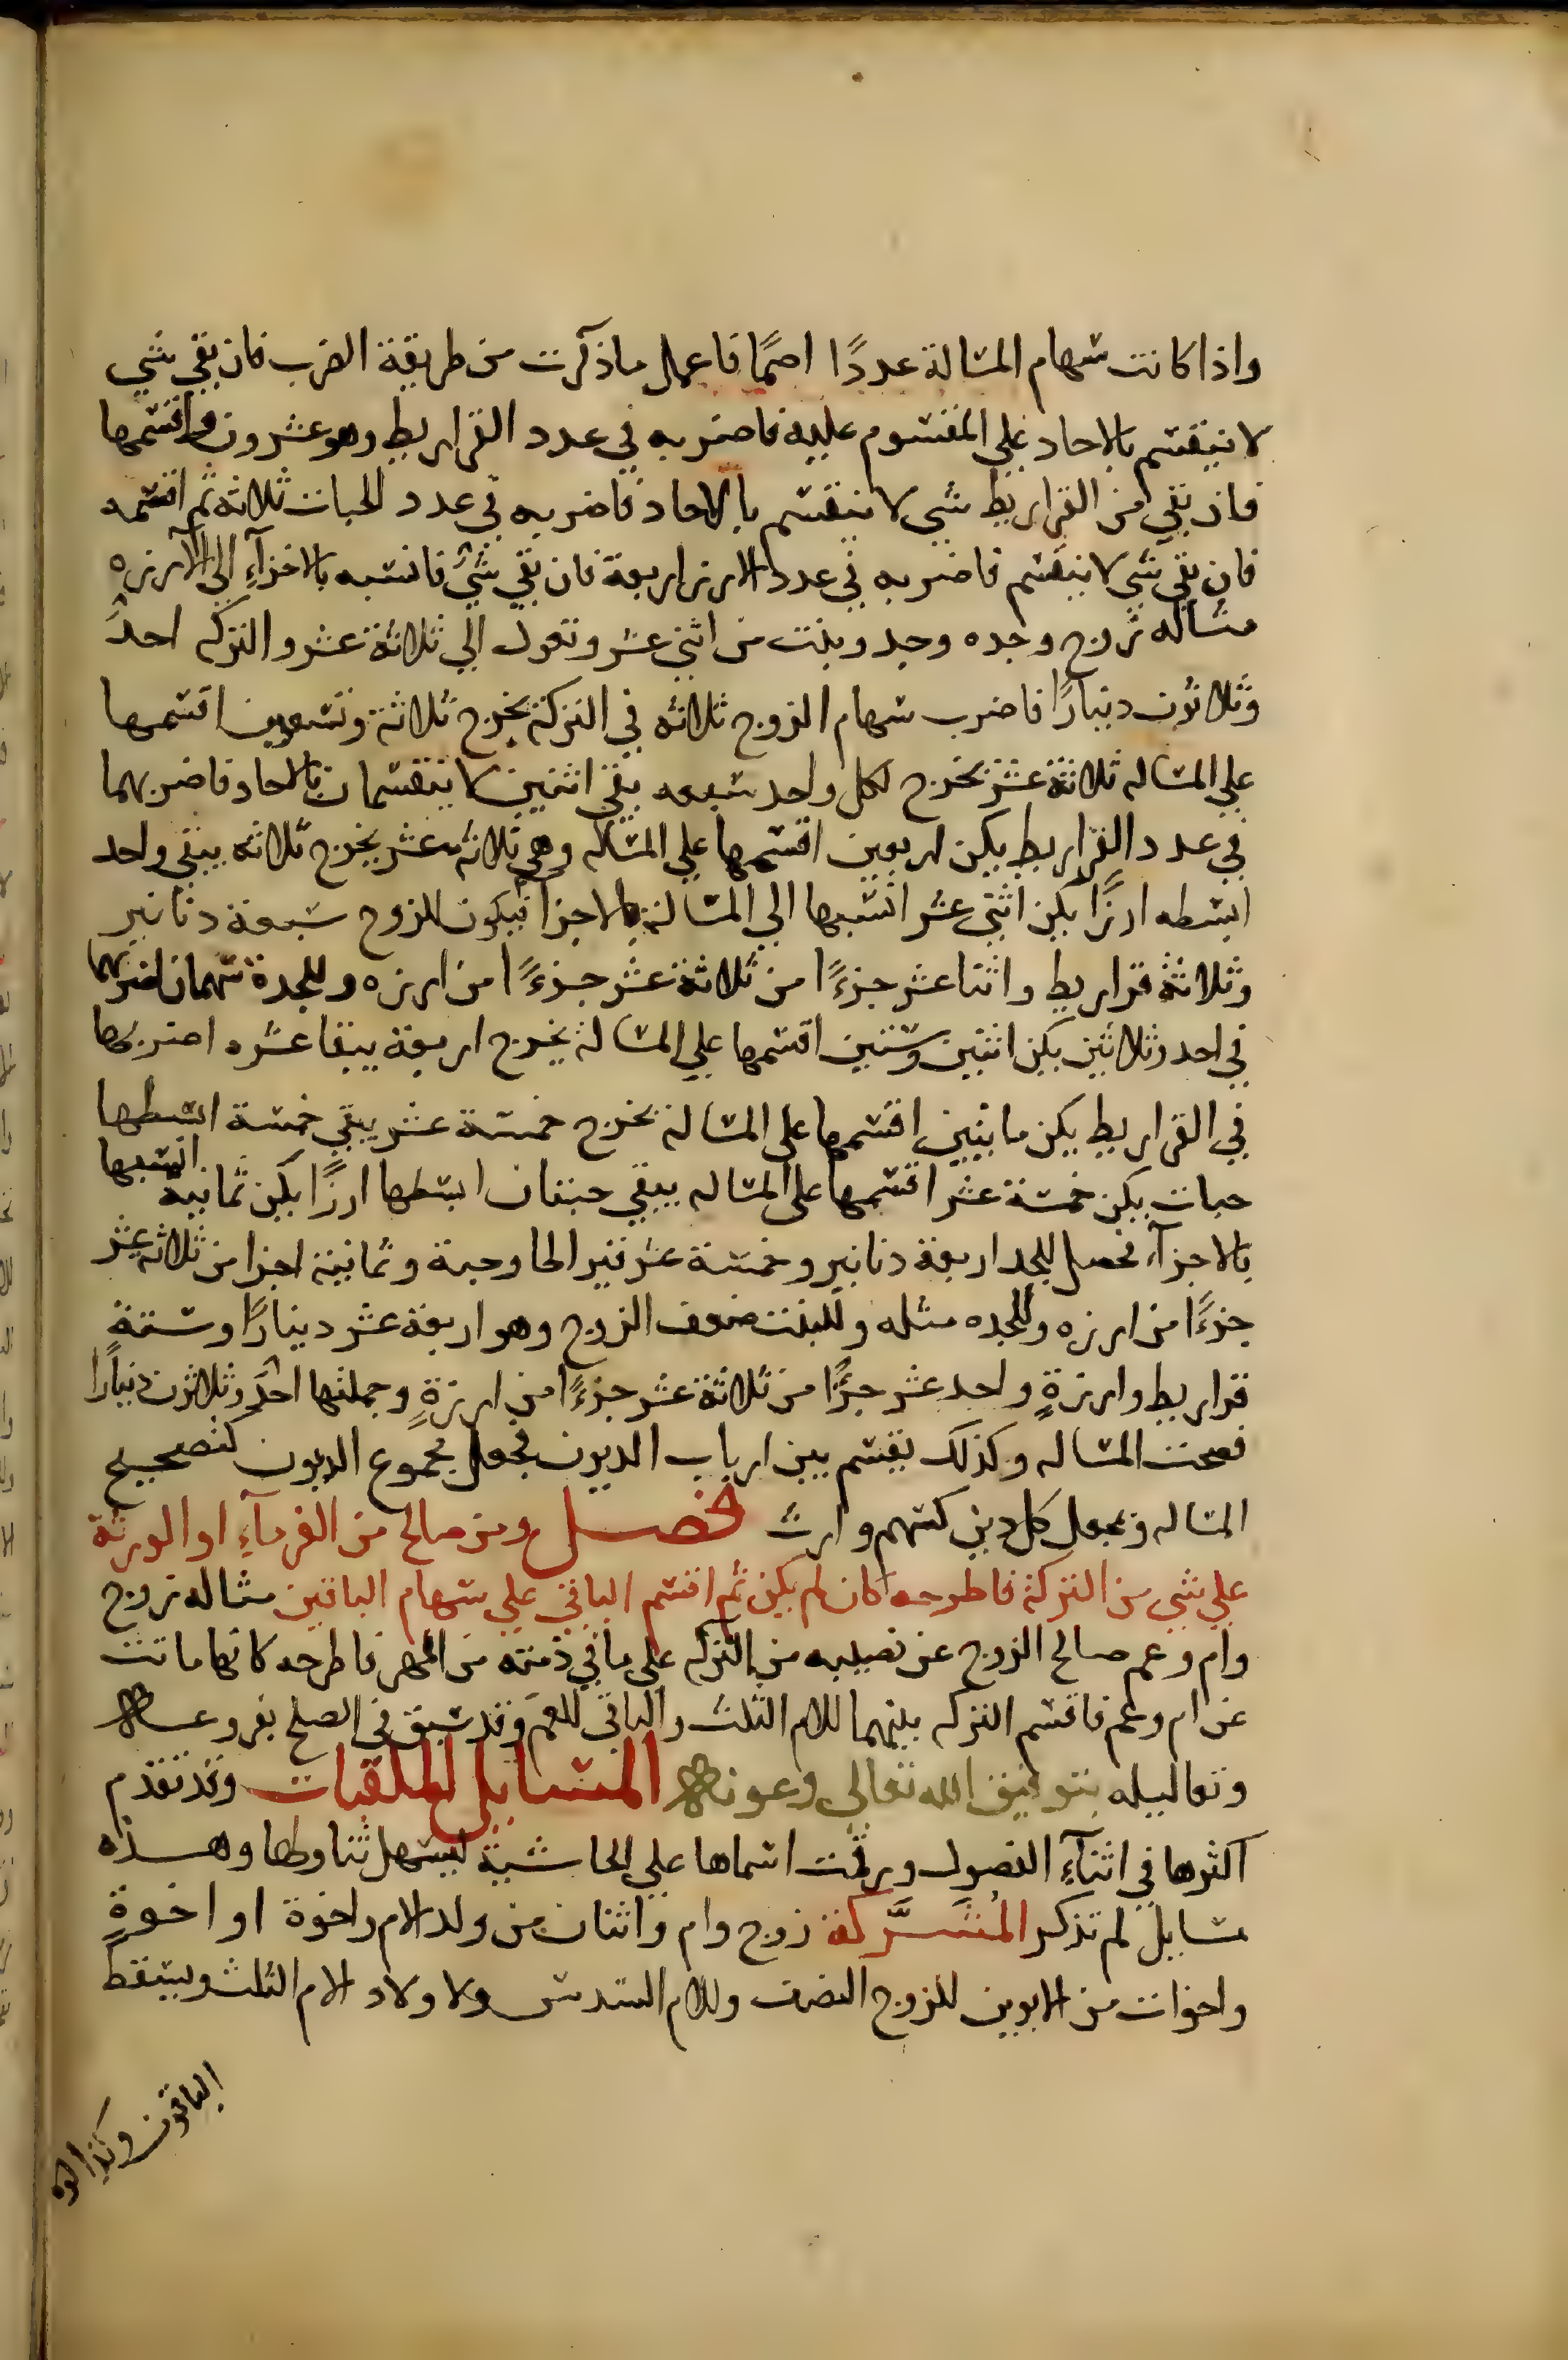 واذا كانت سهام المسالة عددًا اصمًا فاعمل ما ذكرت من طريقة الضرب فان بقي شي
لا ينقسم بالاحاد علي المقسوم عليه فاضربه في عدد القراريط وهو عشرون واقسمها
فان بقي من القراريط شي لا ينقسم بالاحاد فاضربه في عدد الحبات ثلاثة ثم اقسمه
فان بقي شي لا ينقسم فاضربه في عدد الارز اربعة فان بقي شئ فانسبه بالاجزآءِ الي الارزه
مثاله زوج وجده وجد وبنت من اثني عشر وتعول الي ثلاثة عشر والتركه احدٌ
وثلاثون دينارًا فاضرب سهام الزوج ثلاثه في التركة يخرج ثلاثة وتسعين اقسمها
علي المساله ثلاثة عشر يخرج لكل واحد سبعه بقي اثنين لا ينقسمان بالاحاد فاضربهما
في عدد القراريط يكن اربعين اقسمها علي المساله وهي ثلاثه عشر يخرج ثلاثه يبقي واحد
ابسطه ارزًا يكن اثني عشر انسبها الي المسالة بالاجزا فيكون للزوج سبعة دنانير
وثلاثة قراريط واثنا عشر جزءًا من ثلاثة عشر جزءًا من ارزه وللجدة سهمان اضربهما
في احد وثلاثين يكن اثنين وستين اقسمها علي المسالة يخرج اربعة يبقا عشره اضربها
في القراريط يكن مايتين اقسمها علي المسالة يخرج خمسة عشر يبقي خمسة ابسطها
حبات يكن خمسة عشر اقسمها علي المساله يبقي حبتان ابسطها ارزًا يكن ثمانية انسبها
بالاجزآء فحصل للجد اربعة دنانير وخمسة عشر قيراطا وحبة وثمانية اجزا من ثلاثه عشر
جزءًا من ارزه وللجده مثله وللبنت ضعف الزوج وهو اربعة عشر دينارًا وستة
قراريط وارزةٍ واحد عشر جزءًا من ثلاثة عشر جزءًا من ارزةٍ وجملتها احدٌ وثلاثون دينارًا
فصحت المساله وكذلك يقسم بين ارباب الديون فجعل مجموع الديون كتصحيح
المساله ويجعل كل دين كسهم وارث فصل ومن صالح من الغرمآءِ او الورثة
علي شي من التركة فاطرحه كان لم يكن ثم اقسم الباقي علي سهام الباقين مثاله زوج
وام وعم صالح الزوج عن نصيبه من التركه علي ما في ذمته من المهر فاطرحه كانها ماتت
عن ام وعم فاقسم التركه بينهما للام الثلث والباقي للعم وقد سبق في الصلح بفروعه
وتعاليله بتوفيق الله تعالي وعونه المسايل الملقبات وقد تقدم
اكثرها في اثنآءِ الفصول ورقمت اسماها علي الحاشية ليسهل تناولها وهذه
مسايل لم تذكر المُشَرَّكة زوج وام واثنان من ولد الام واخوة او اخوةٍ
واخوات من الابوين للزوج النصف وللام السدس ولاولاد الام الثلث ويسقط
الباقون وكذا لو